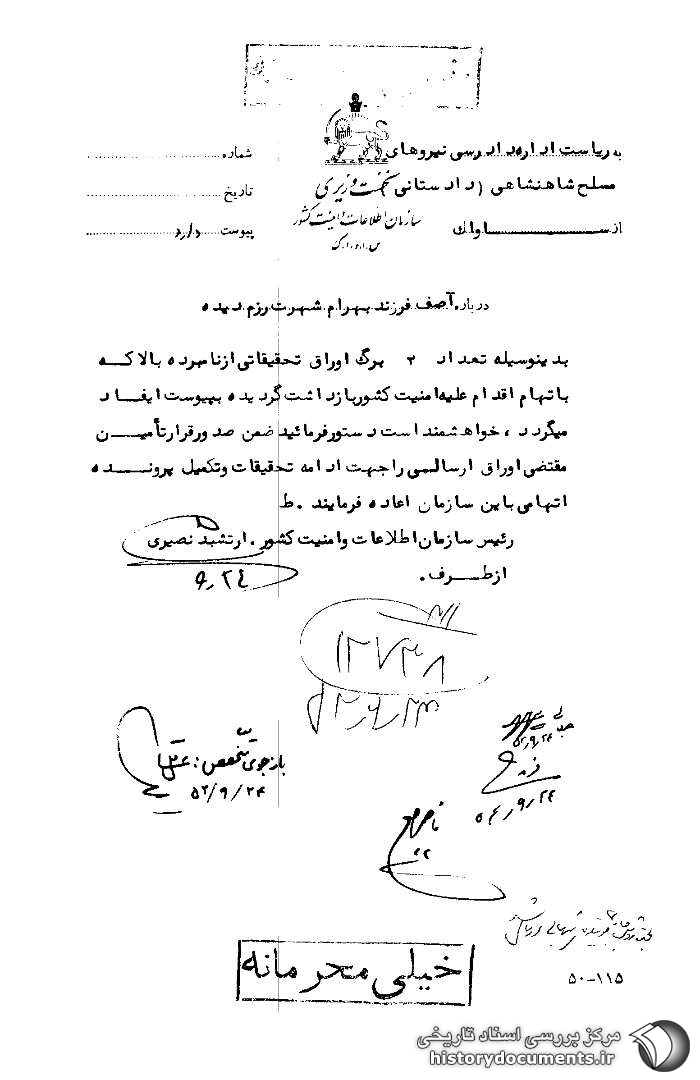 به ریاست اداره دادرسی نیروهای
مسلح شاهنشاهی (دادستانی)
نخست وزیری
سازمان اطلاعات و امنیت کشور
س.ا.و.ا.ک
از ســـــاواک
شماره
تاریخ
پیوست دارد
درباره آصف فرزند بهرام شهرت رزم دیده
بدینوسیله تعداد ۲ برگ اوراق تحقیقاتی ازنامبرده بالا کـه
باتهام اقدام علیه امنیت کشور بازداشت گردیده بپیوست ایفـاد
میگردد، خواهشمند است دستور فرمائید ضمن صدور قرار تأمیـن
مقتضی اوراق ارسالی را جهت ادامه تحقیقات و تکمیل پرونـده
اتهامی باین سازمان اعاده فرمایند . ط
رئیس سازمان اطلاعات وامنیت کشور . ارتشبد نصیری
ازطــرف.
۹٫۲۴
۱۲۷۳۸
بازجوی متخصص :
۵۲/۹/۲۴
۵۲٫۹٫۲۴
خیلی محرمانه
۵۰-۱۱۵
مرکز بررسی اسناد تاریخی
historydocuments.ir